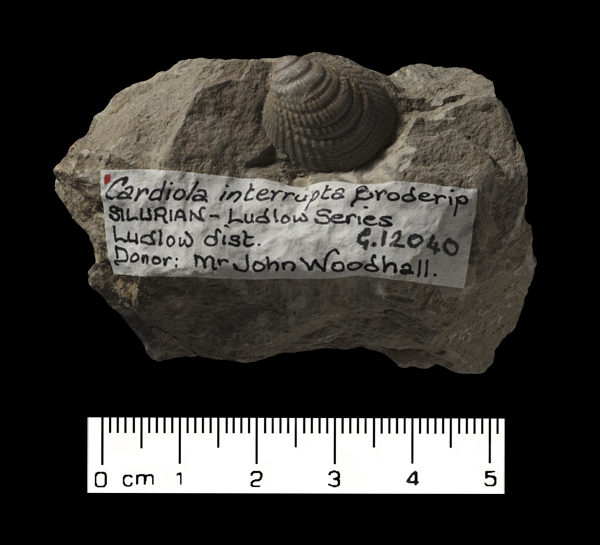 Cardiola interrupta Broderip
SILURIAN - Ludlow Series
Ludlow dist. G.12040
Donor: Mr John Woodhall.
0 cm 1 2 3 4 5